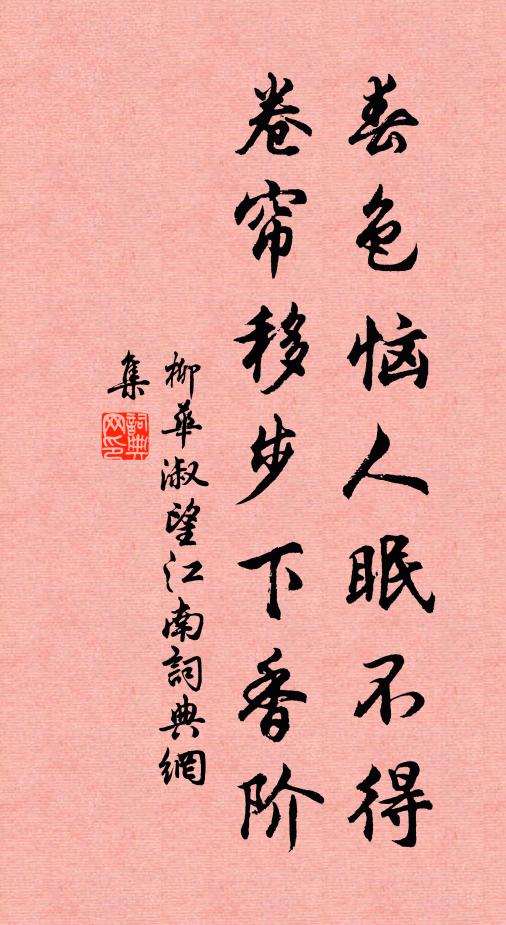 春色恼人眠不得
卷帘移步下香阶
柳華淑望江南詞典網
集
詞典网印